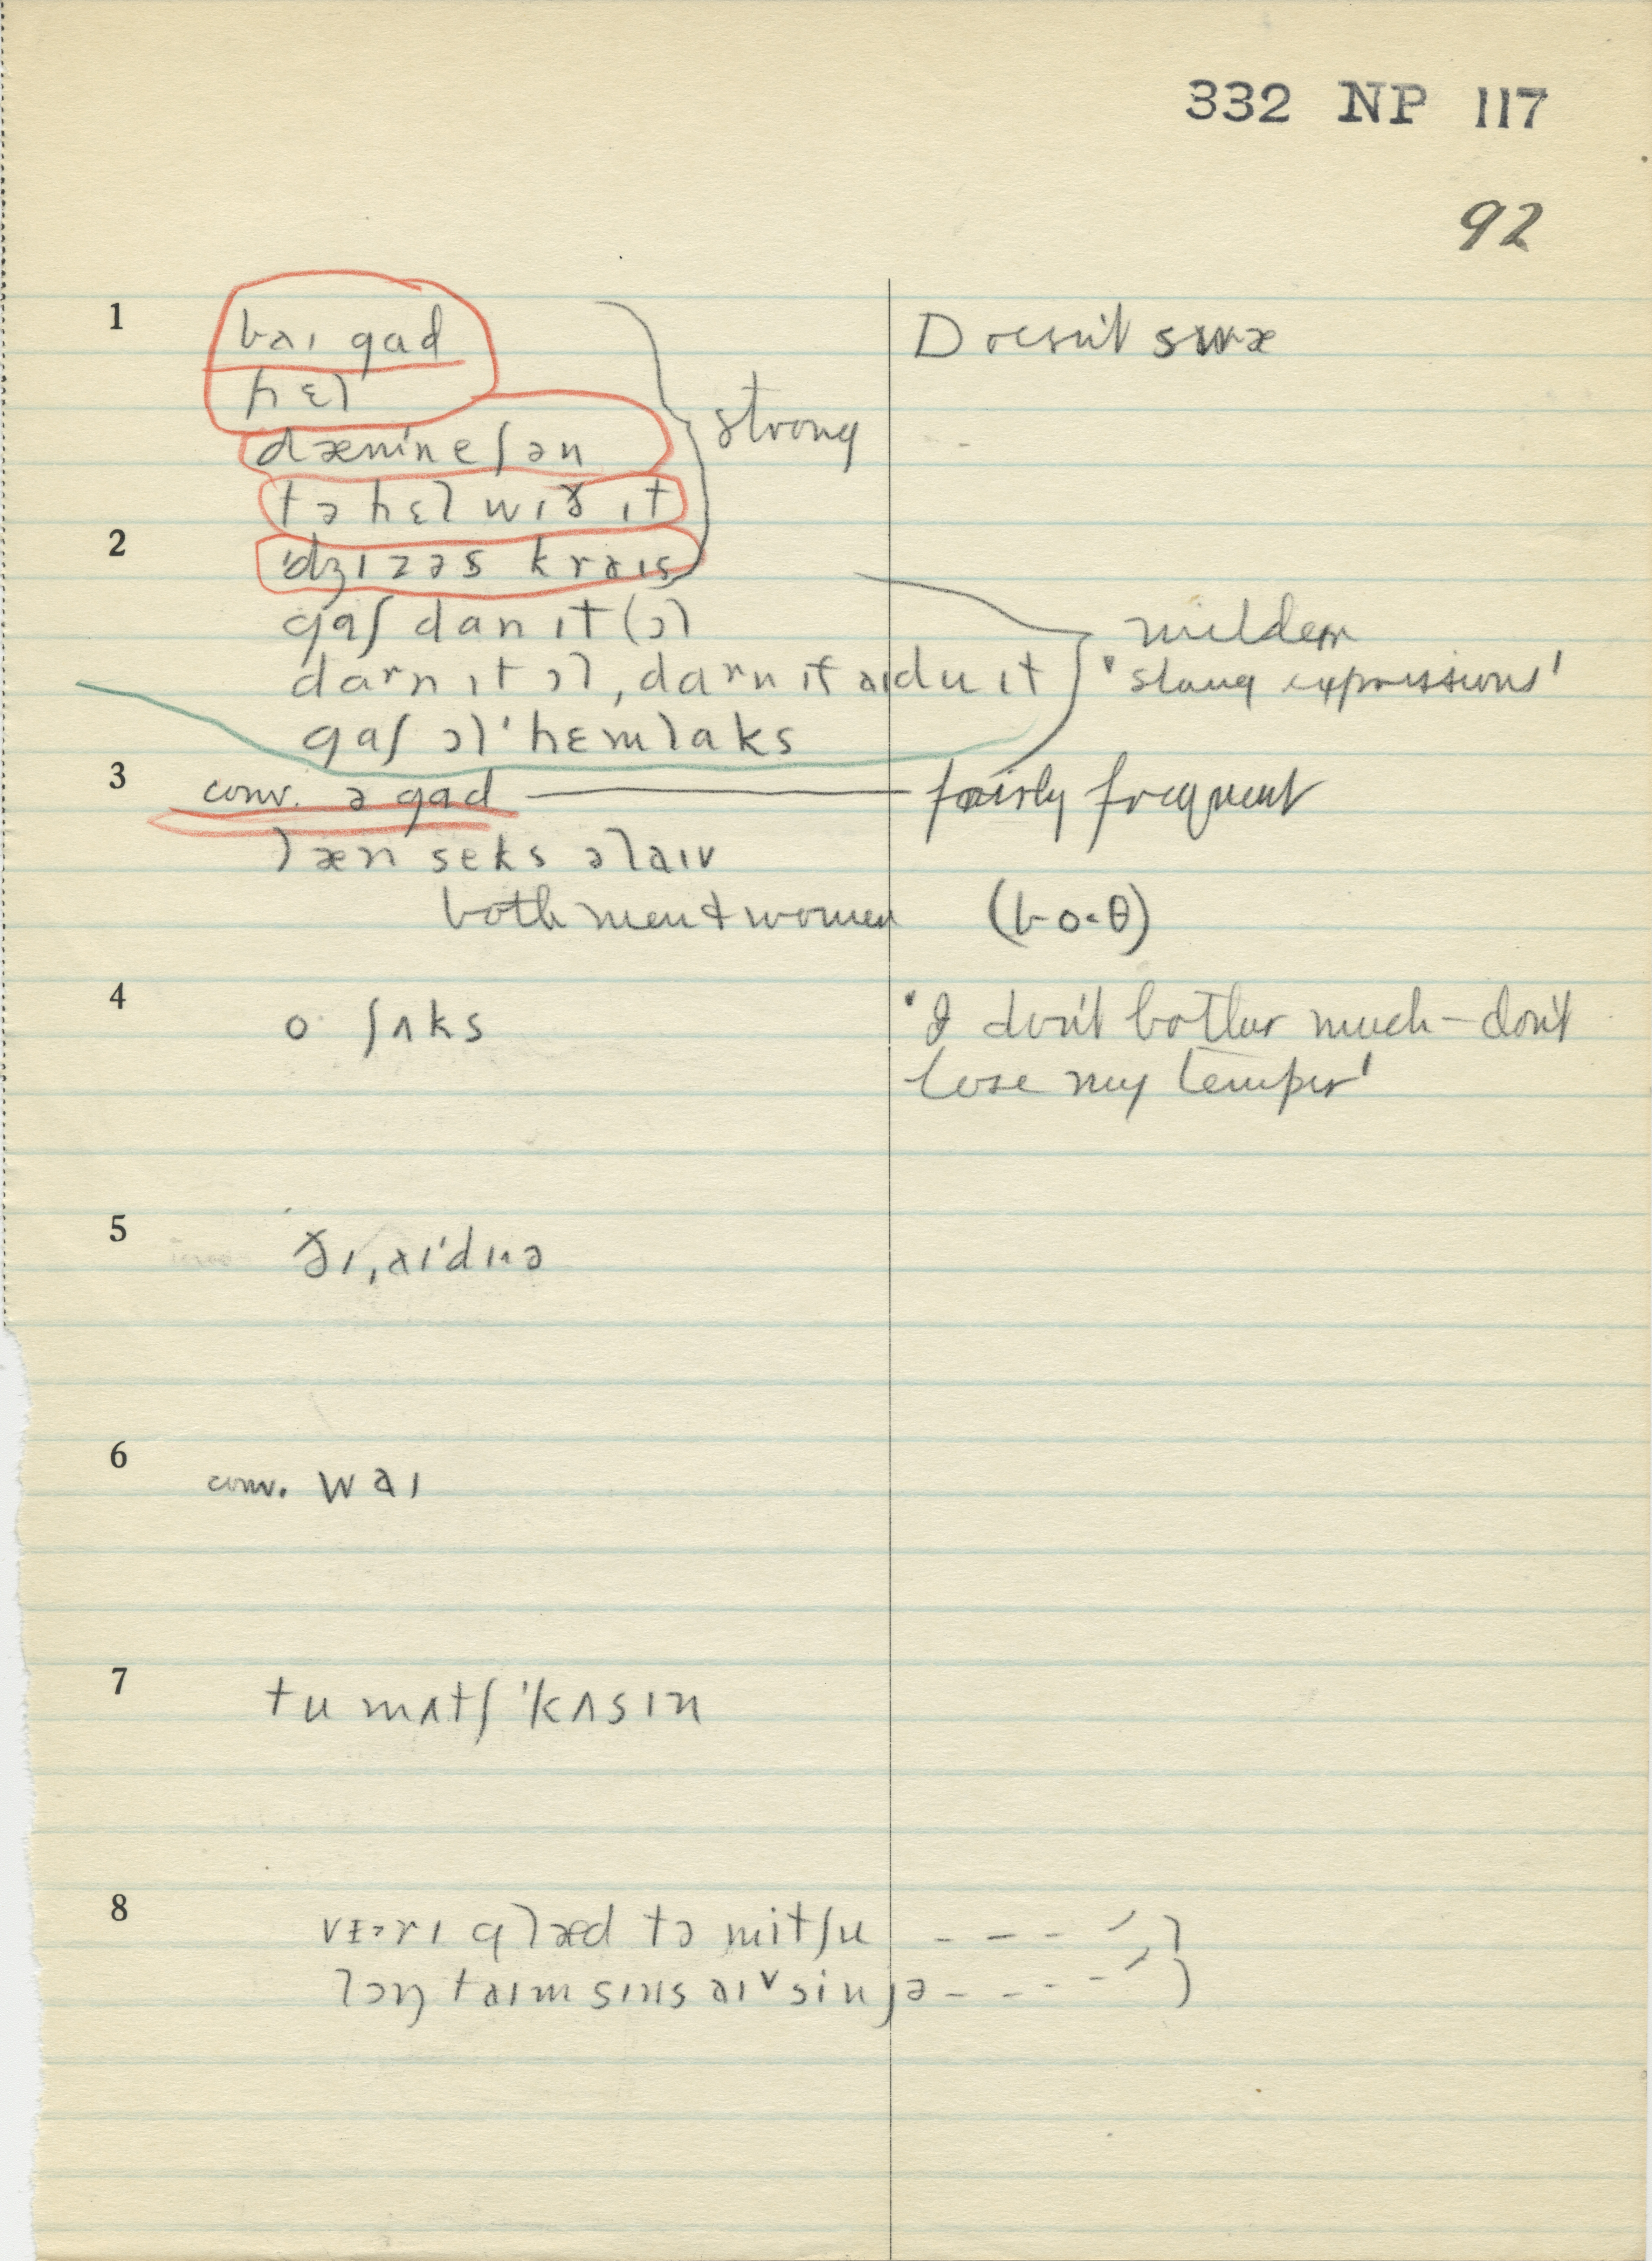 332 NP 117
92
1 baɪ gad Doesn't
hɛl
dæmineʃən strong
tə hɛl wɪð ɪt
2 'dʒɪzəs kraɪs
gaʃ dan ɪt (ɔl milder
darn ɪt ɔl, darn ɪf aɪ du ɪt 'slang expressions'
gaʃ ɔl'hɛmlaks
3 conv. ə gad fairly frequent
læn seks əlaɪv
both men & women (bo·θ)
4 o ʃʌks 'I don't bother much – don't
lose my temper'
5 ðɪ, aɪ'dɪə
6 conv. waɪ
7 tu mʌtʃ 'kʌsɪn
8 glæd tə mitʃu - - -
lɔŋ taɪm sɪns aɪv sin jə - - - -